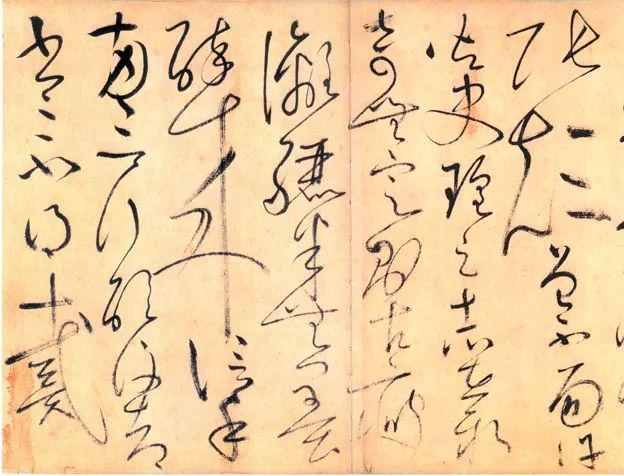 張顛曾不面許
御史瑤云志在新
奇無定則古瘦
灕驪半無墨
醉來信手
兩三行醒後却
書書不得戴